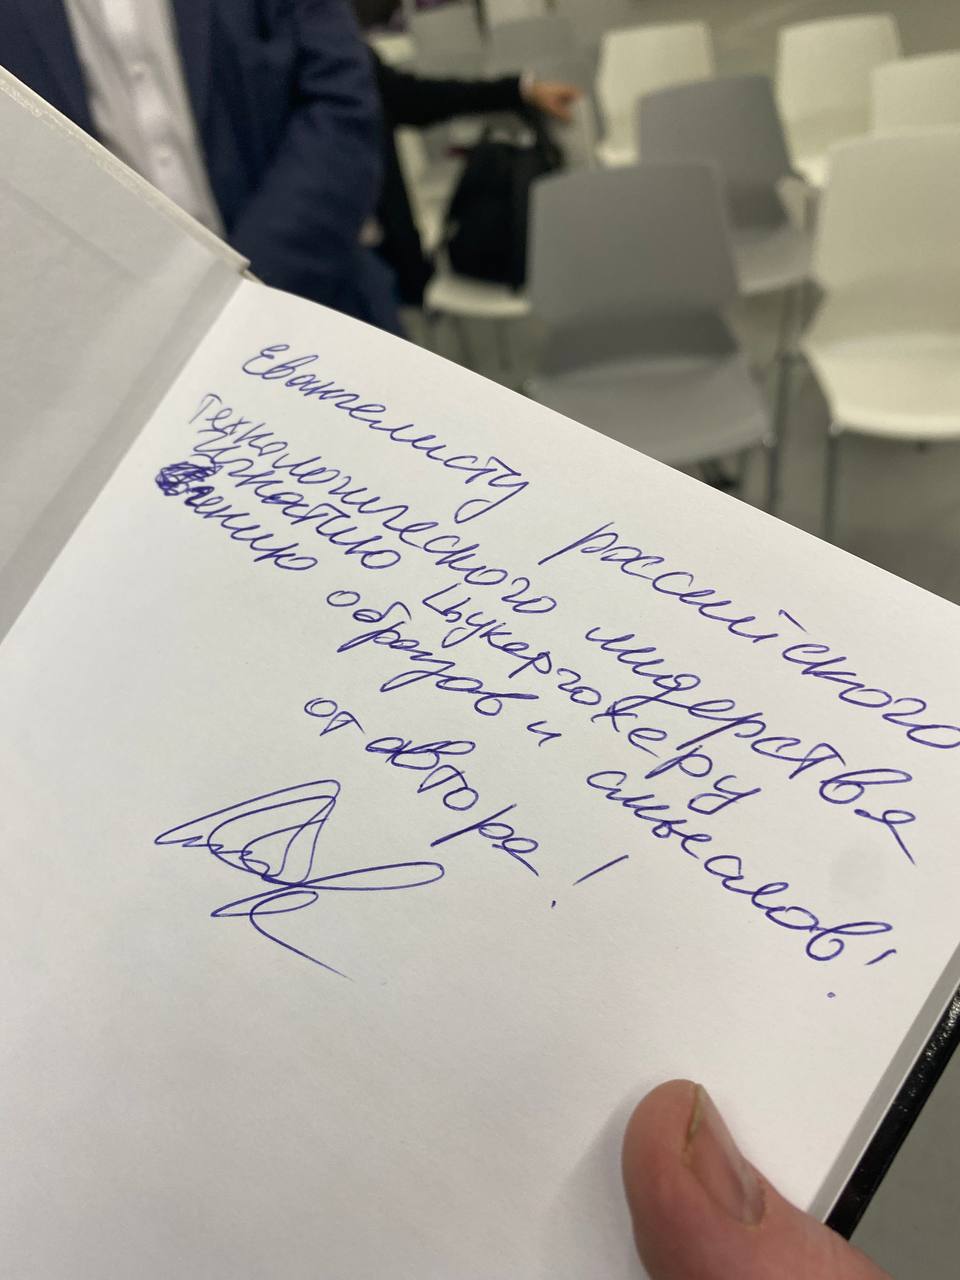 Евангелисту российского
технологического лидерства
Игнатию Цукергохеру
гению образов и смыслов!
от автора!